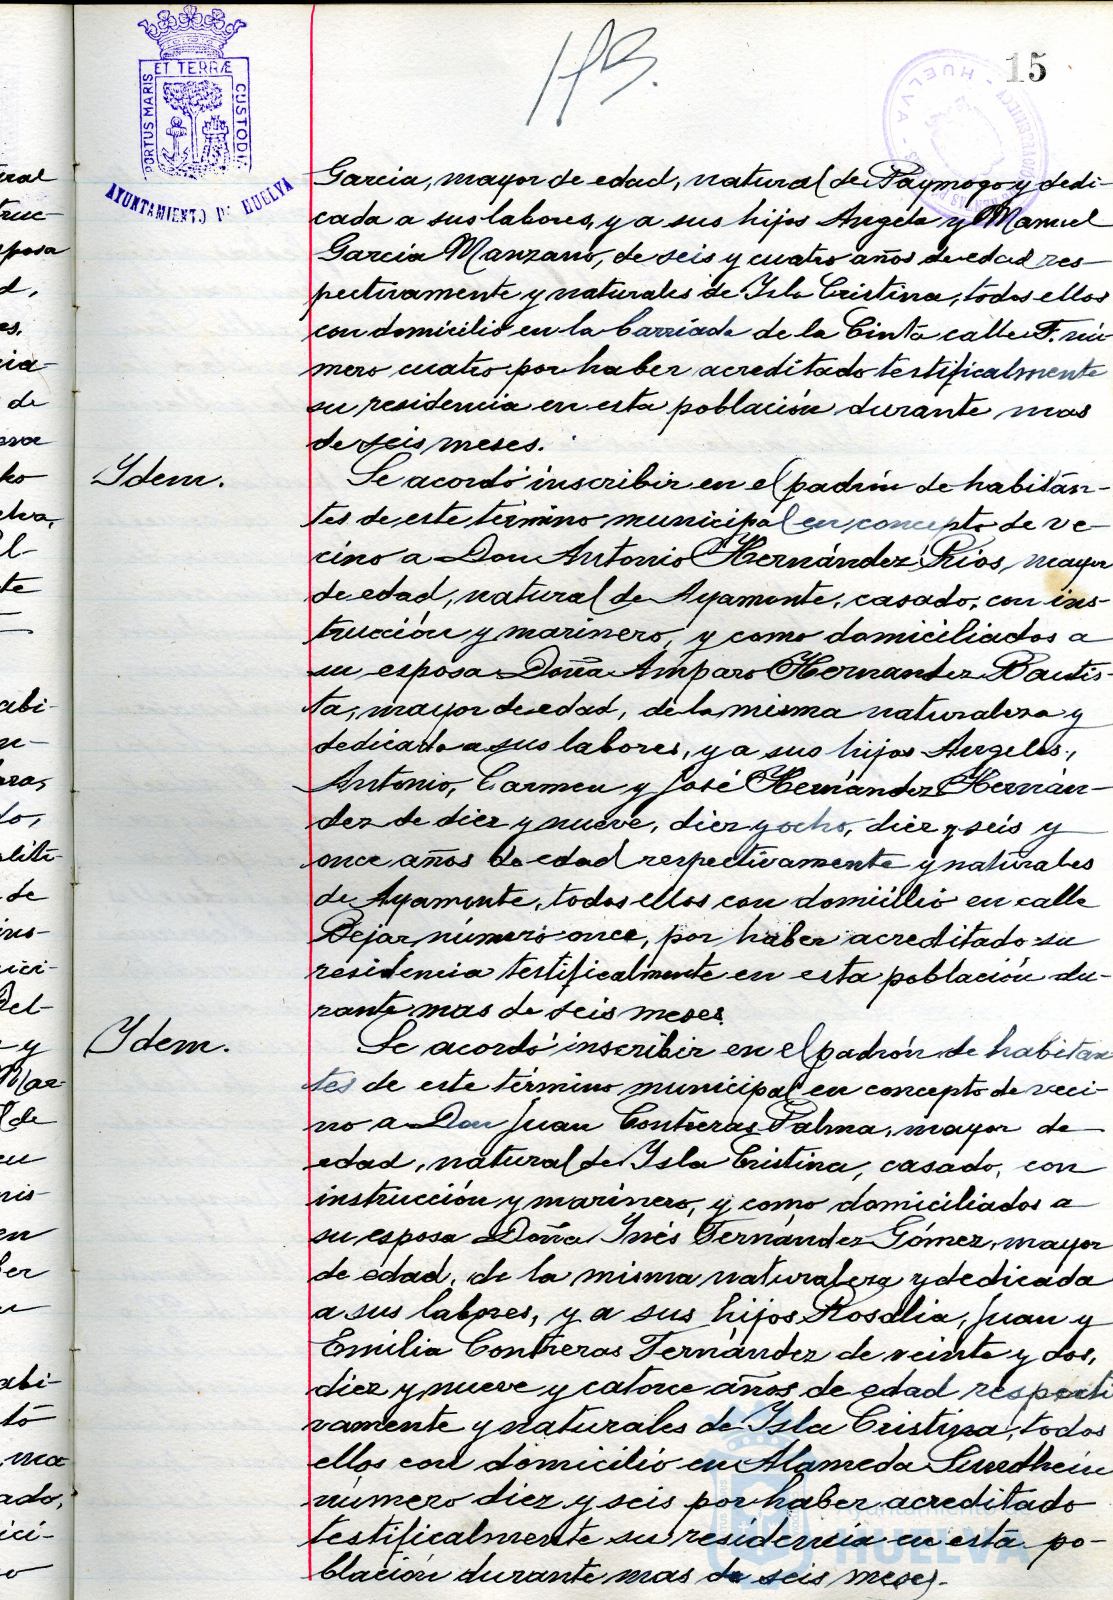 ET TERRÆ
PORTUS MARIS
CUSTODI
AYUNTAMIENTO DE HUELVA
HUELVA
15
Garcia, mayor de edad, natural de Paymogo y dedi-
cada a sus labores, y a sus hijos Angela y Manuel
Garcia Manzano, de seis y cuatro años de edad res-
pectivamente y naturales de Isla Cristina, todos ellos
con domicilio en la barriada de la Cinta calle F. nú-
mero cuatro por haber acreditado testificalmente
su residencia en esta población durante mas
de seis meses.
Ydem.
Se acordó inscribir en el padrón de habitan-
tes de este término municipal en concepto de ve-
cino a Don Antonio Hernández Rios, mayor
de edad, natural de Ayamonte, casado, con ins-
trucción y marinero, y como domiciliados a
su esposa Doña Amparo Hernandez Bautis-
ta, mayor de edad, de la misma naturaleza y
dedicada a sus labores, y a sus hijos Angeles,
Antonio, Carmen y José Hernández Hernán-
dez de diez y nueve, diez y ocho, diez y seis y
once años de edad respectivamente y naturales
de Ayamonte, todos ellos con domicilio en calle
Bejar número once, por haber acreditado su
residencia testificalmente en esta población du-
rante mas de seis meses.
Ydem.
Se acordó inscribir en el padrón de habitan
tes de este término municipal en concepto de veci-
no a Don Juan Contreras Palma, mayor de
edad, natural de Isla Cristina, casado, con
instrucción y marinero, y como domiciliados a
su esposa Doña Inés Fernández Gómez, mayor
de edad, de la misma naturaleza y dedicada
a sus labores, y a sus hijos Rosalia, Juan y
Emilia Contreras Fernández de veinte y dos,
diez y nueve y catorce años de edad respecti
vamente y naturales de Isla Cristina, todos
ellos con domicilio en Alameda Sundhein
número diez y seis por haber acreditado
testificalmente su residencia en esta po-
blación durante mas de seis meses.
Ayuntamiento de
HUELVA